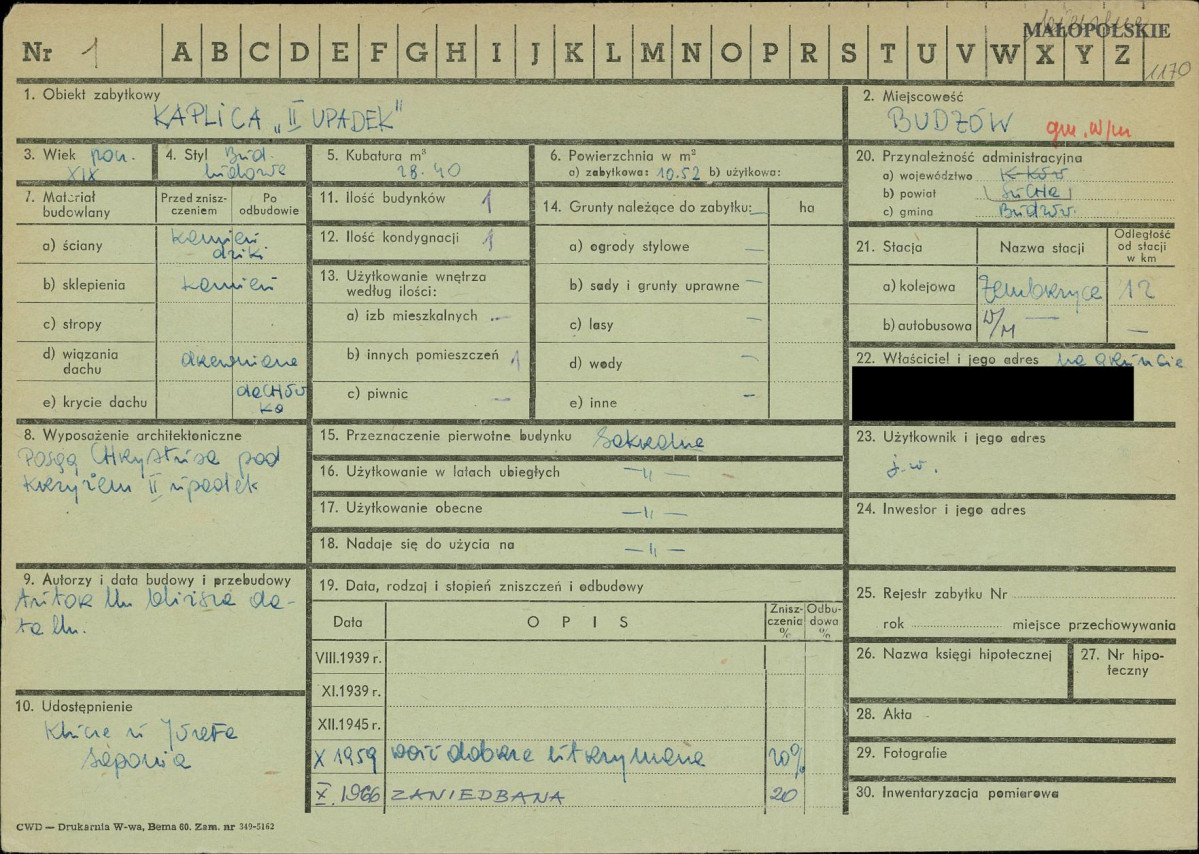 MAŁOPOLSKIE
Nr 1 A B C D E F G H I J K L M N O P R S T U V W X Y Z
1170
1. Obiekt zabytkowy
KAPLICA „II UPADEK"
2. Miejscowość
BUDZÓW gm. w/m
3. Wiek pocz.
XIX
4. Styl Bud.
ludowe
5. Kubatura m³
28.40
6. Powierzchnia w m²
a) zabytkowa: 10.52 b) użytkowa:
7. Materiał budowlany
Przed zniszczeniem
Po odbudowie
a) ściany kamień
dziki
b) sklepienia kamień
c) stropy
d) wiązania dachu drewniane
e) krycie dachu dachów
ka
8. Wyposażenie architektoniczne
Posąg CHrystusa pod
krzyżem II upadek
9. Autorzy i data budowy i przebudowy
Autor nn bliższa da-
ta nn.
10. Udostępnienie
Klucze u Józefa
11. Ilość budynków 1
12. Ilość kondygnacji 1
13. Użytkowanie wnętrza
według ilości:
a) izb mieszkalnych —
b) innych pomieszczeń 1
c) piwnic —
14. Grunty należące do zabytku: — ha
a) ogrody stylowe —
b) sady i grunty uprawne —
c) lasy —
d) wody —
e) inne —
15. Przeznaczenie pierwotne budynku Sakralne
16. Użytkowanie w latach ubiegłych —„—
17. Użytkowanie obecne —„—
18. Nadaje się do użycia na —„—
19. Data, rodzaj i stopień zniszczeń i odbudowy
Data OPIS Zniszczenia % Odbudowa %
VIII.1939 r.
XI.1939 r.
XII.1945 r.
X 1959 dość dobrze utrzymana 20%
X.1966 ZANIEDBANA 20
20. Przynależność administracyjna
a) województwo K-ków
b) powiat (SUCHA)
c) gmina Budzów
21. Stacja
Nazwa stacji
Odległość od stacji w km
a) kolejowa Zembrzyce 12
b) autobusowa W/M — —
22. Właściciel i jego adres na gruncie
23. Użytkownik i jego adres
j.w.
24. Inwestor i jego adres
25. Rejestr zabytku Nr
rok miejsce przechowywania
26. Nazwa księgi hipotecznej
27. Nr hipoteczny
28. Akta
29. Fotografie
30. Inwentaryzacja pomiarowa
CWD — Drukarnia W-wa, Bema 60. Zam. nr 349-5162